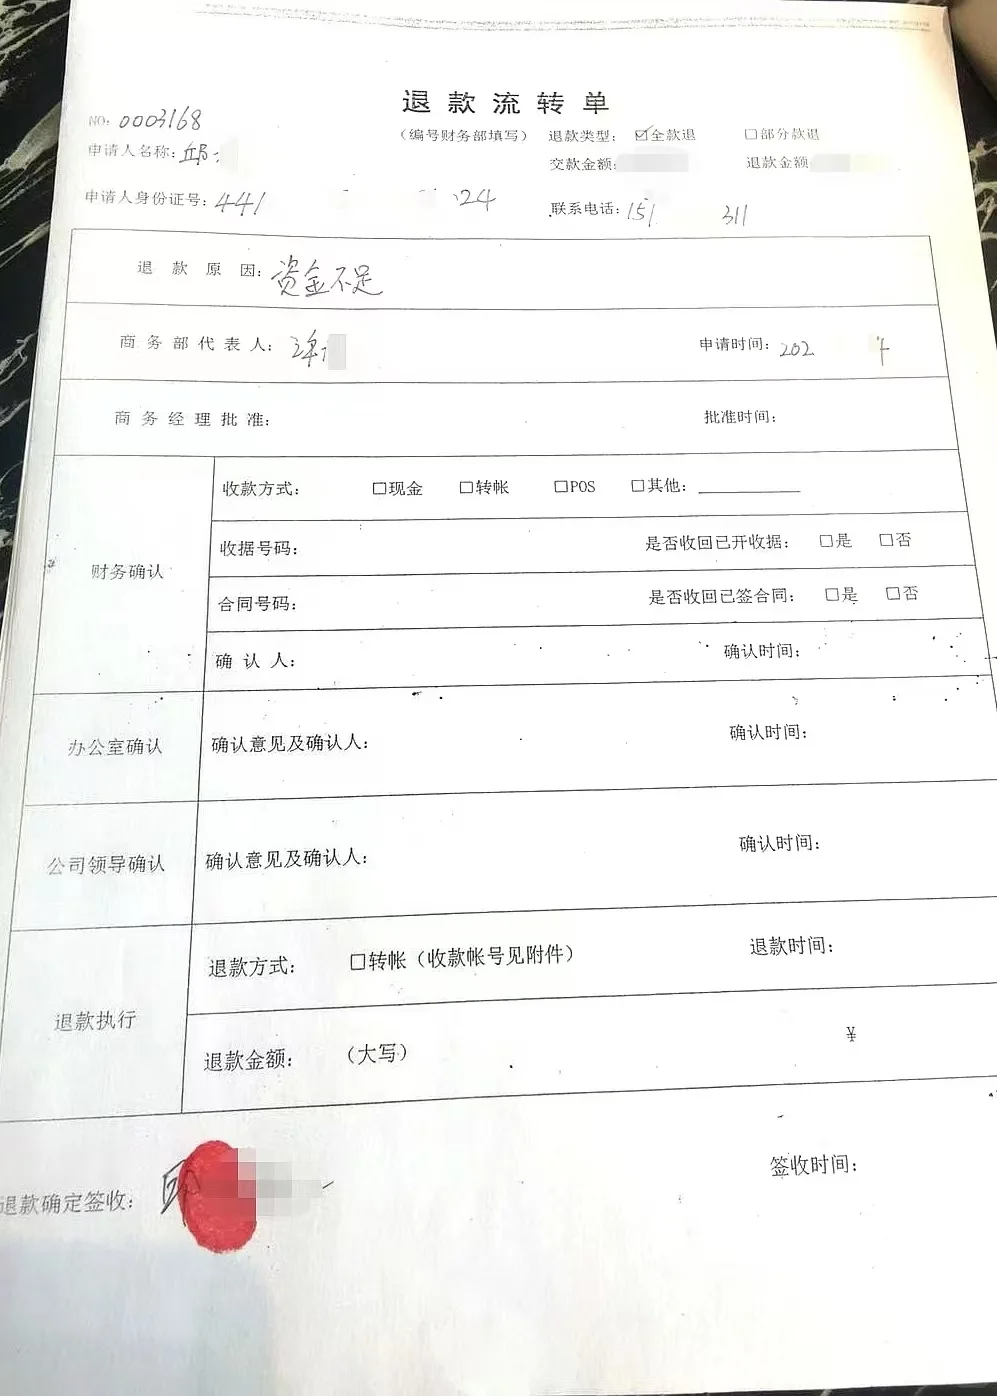 退款流转单
NO: 0003168 （编号财务部填写） 退款类型: ☑全款退 □部分款退
申请人名称: 邱 交款金额: 退款金额:
申请人身份证号: 441 24 联系电话: 151 311
退款原因: 资金不足
商务部代表人: 申请时间: 202
商务经理批准: 批准时间:
财务确认
收款方式: □现金 □转帐 □POS □其他:
收据号码: 是否收回已开收据: □是 □否
合同号码: 是否收回已签合同: □是 □否
确认人: 确认时间:
办公室确认 确认意见及确认人: 确认时间:
公司领导确认 确认意见及确认人: 确认时间:
退款执行
退款方式: □转帐（收款帐号见附件） 退款时间:
退款金额: （大写） ¥
退款确定签收: 签收时间: